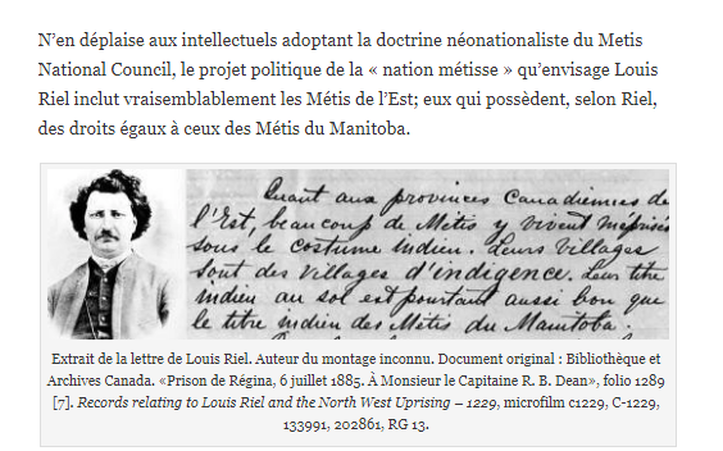 N’en déplaise aux intellectuels adoptant la doctrine néonationaliste du Metis
National Council, le projet politique de la « nation métisse » qu’envisage Louis
Riel inclut vraisemblablement les Métis de l’Est; eux qui possèdent, selon Riel,
des droits égaux à ceux des Métis du Manitoba.
Quant aux provinces Canadiennes de
l'Est, beaucoup de Métis y vivent méprisés
sous le costume indien. Leurs villages
sont des villages d'indigence. Leur titre
indien au sol est pourtant aussi bon que
le titre indien des Métis du Manitoba.
Extrait de la lettre de Louis Riel. Auteur du montage inconnu. Document original : Bibliothèque et
Archives Canada. «Prison de Régina, 6 juillet 1885. À Monsieur le Capitaine R. B. Dean», folio 1289
[7]. Records relating to Louis Riel and the North West Uprising – 1229, microfilm c1229, C-1229,
133991, 202861, RG 13.